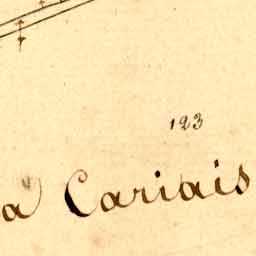 123
a Cariais